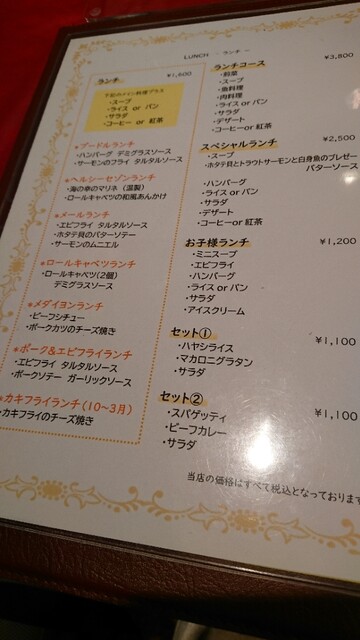 LUNCH － ランチ －
ランチ ¥1,600
下記のメイン料理プラス
・スープ
・ライス or パン
・サラダ
・コーヒー or 紅茶
＊プードルランチ
・ハンバーグ デミグラスソース
・サーモンのフライ タルタルソース
＊ヘルシーセゾンランチ
・海の幸のマリネ（温製）
・ロールキャベツの和風あんかけ
＊メールランチ
・エビフライ タルタルソース
・ホタテ貝のバターソテー
・サーモンのムニエル
＊ロールキャベツランチ
・ロールキャベツ(2個)
デミグラスソース
＊メダイヨンランチ
・ビーフシチュー
・ポークカツのチーズ焼き
＊ポーク&エビフライランチ
・エビフライ タルタルソース
・ポークソテー ガーリックソース
＊カキフライランチ(10～3月)
・カキフライのチーズ焼き
ランチコース ¥3,800
・前菜
・スープ
・魚料理
・肉料理
・ライス or パン
・サラダ
・デザート
・コーヒー or 紅茶
スペシャルランチ ¥2,500
・スープ
・ホタテ貝とトラウトサーモンと白身魚のブレゼー
バターソース
・ハンバーグ
・ライス or パン
・サラダ
・デザート
・コーヒー or 紅茶
お子様ランチ ¥1,200
・ミニスープ
・エビフライ
・ハンバーグ
・ライス or パン
・サラダ
・アイスクリーム
セット① ¥1,100
・ハヤシライス
・マカロニグラタン
・サラダ
セット② ¥1,100
・スパゲッティ
・ビーフカレー
・サラダ
当店の価格はすべて税込となっております